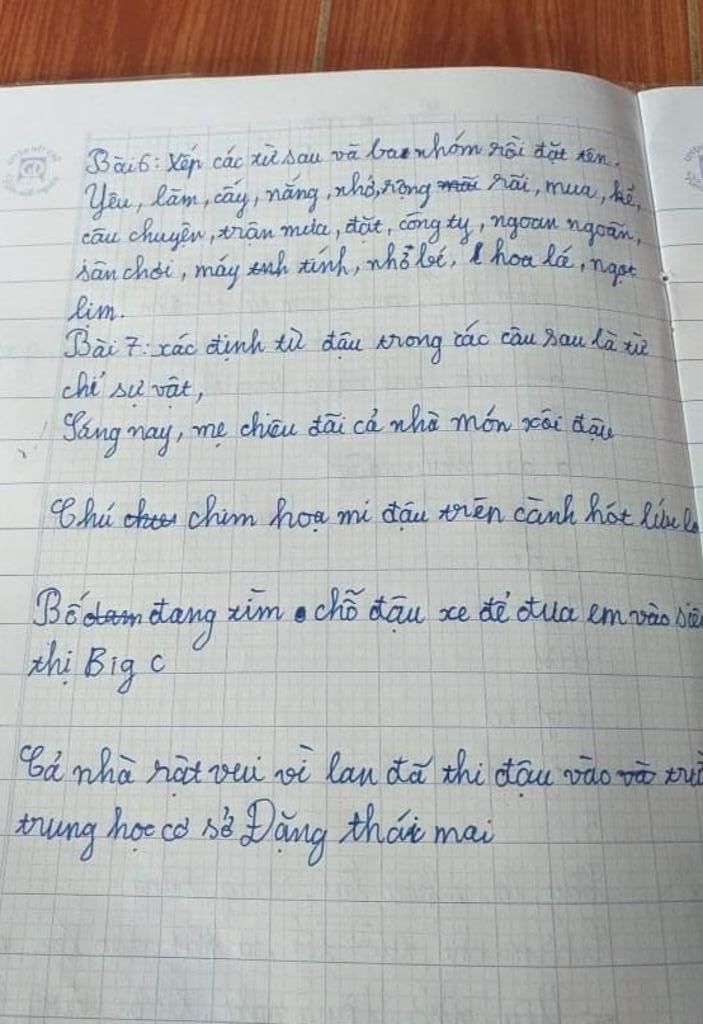 Bài 6: xếp các từ sau và ba nhóm rồi đặt tên.
Yêu, làm, cấy, nắng, nhớ, rộng rãi, mua, kể,
câu chuyện, trận mưa, đặt, công ty, ngoan ngoãn,
sân chơi, máy tính, nhỏ bé, hoa lá, ngọt
lim.
Bài 7: xác định từ đậu trong các câu sau là từ
chỉ sự vật,
Sáng nay, mẹ chiêu đãi cả nhà món xôi đậu
Chú chim hoạ mi đậu trên cành hót líu l
Bố đang tìm chỗ đậu xe để đưa em vào siê
thị Big C
Cả nhà rất vui vì lan đã thi đậu vào trư
trung học cơ sở Đặng thái mai